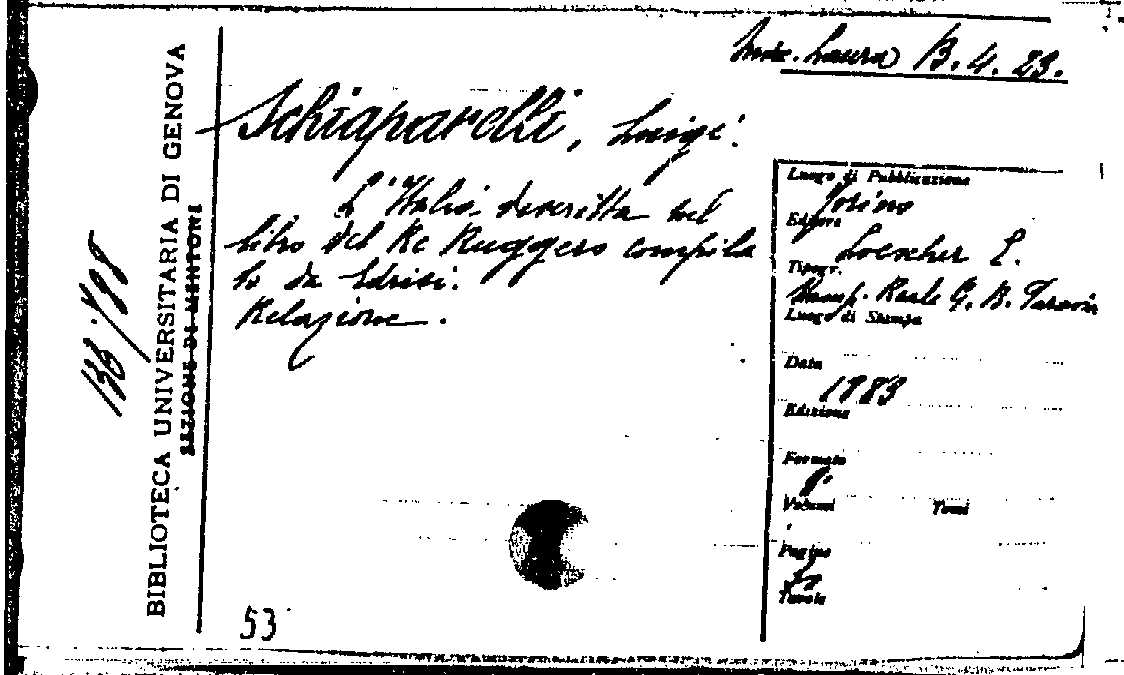 Laura B. 4. 23.
Schiaparelli, Luigi.
L'Italia descritta nel
libro del Re Ruggero compila
to da Edrisi.
Relazione.
Luogo di Pubblicazione
Torino
Editore
Loescher E.
Tipogr.
Stamp. Reale G. B. Paravia
Luogo di Stampa
Data
1883
Edizione
Formato
8°
Volumi Tomi
Pagine
Tavole
53
BIBLIOTECA UNIVERSITARIA DI GENOVA
SEZIONE DI MENTONE